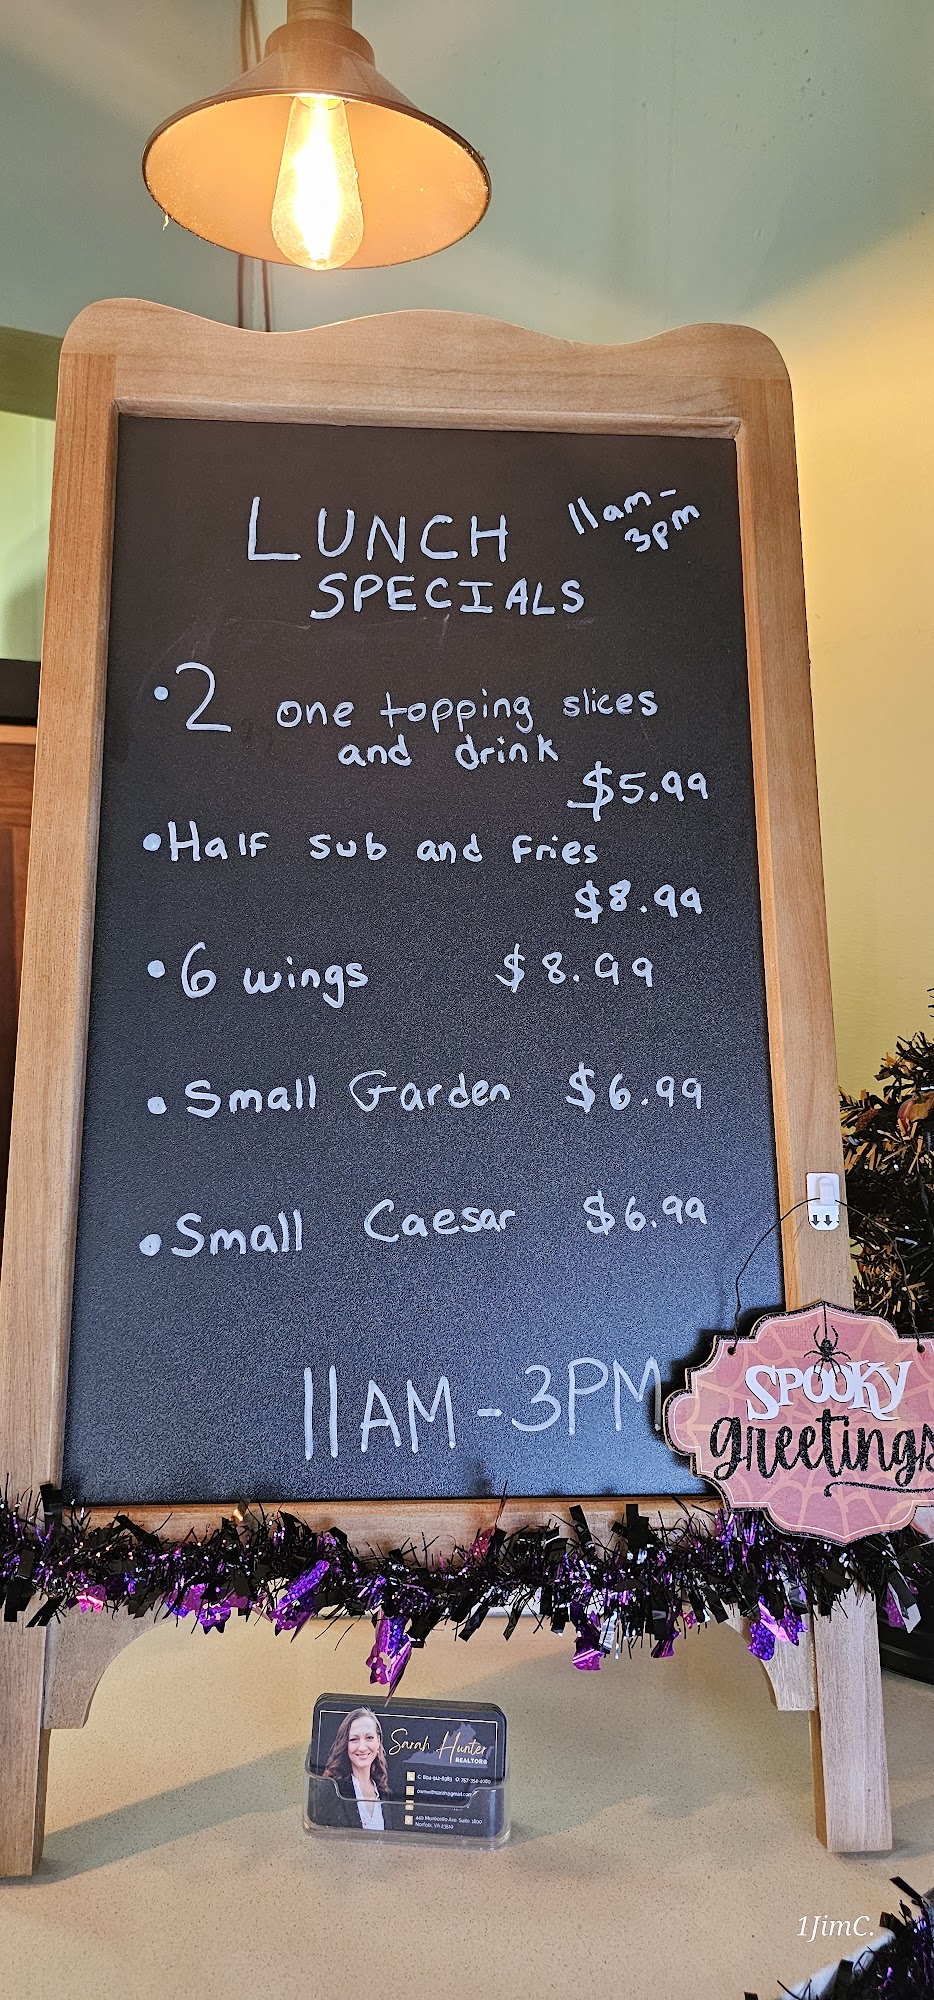 LUNCH 11am-
3pm
SPECIALS
• 2 one topping slices
and drink
$5.99
• Half sub and fries
$8.99
• 6 wings $8.99
• Small Garden $6.99
• Small Caesar $6.99
11AM - 3PM
SPOOKY
greetings
Sarah Hunter
REALTOR®
Norfolk, VA
1JimC.